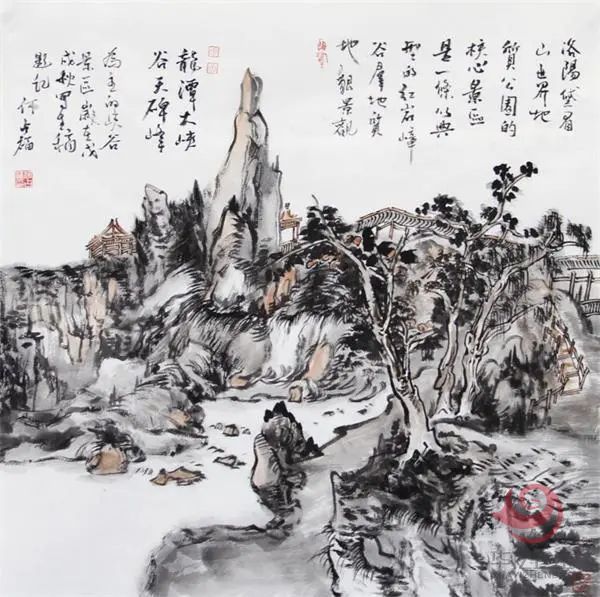 洛陽黛眉
山世界地
質公園的
核心景區
是一條以典
型的紅岩嶂
谷羣地質
地貌景觀
龍潭大峽
谷天碑峰
為主的峽谷
景區 歲在戊
戌秋写生稿
題記